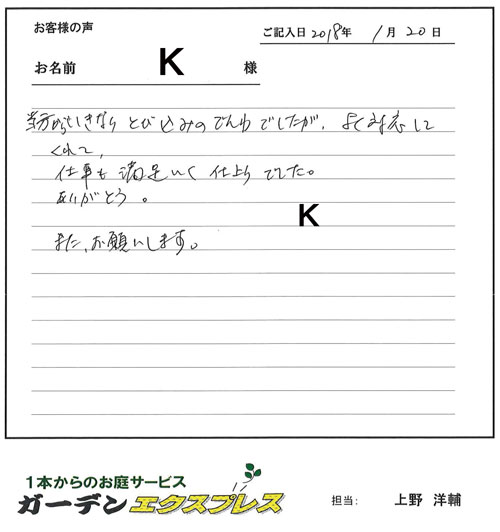 お客様の声
ご記入日 2018年 1月20日
お名前 K 様
当方からいきなりとび込みのでんわでしたが、よく対応して
くれて、
仕事も満足いく仕上りでした。
ありがとう。
K
また、お願いします。
1本からのお庭サービス
ガーデンエクスプレス
担当: 上野 洋輔